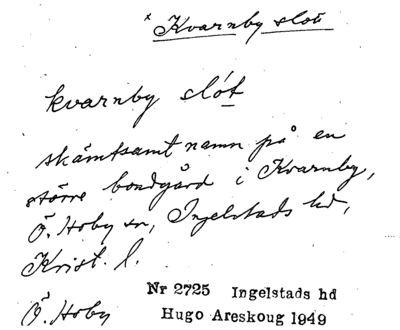 * Kvarnby slott
kvarnby slót
skämtsamt namn på en
större bondgård i Kvarnby,
Ö. Hoby sn, Ingelstads hd,
Krist. l.
Nr 2725 Ingelstads hd
Ö. Hoby
Hugo Areskoug 1949